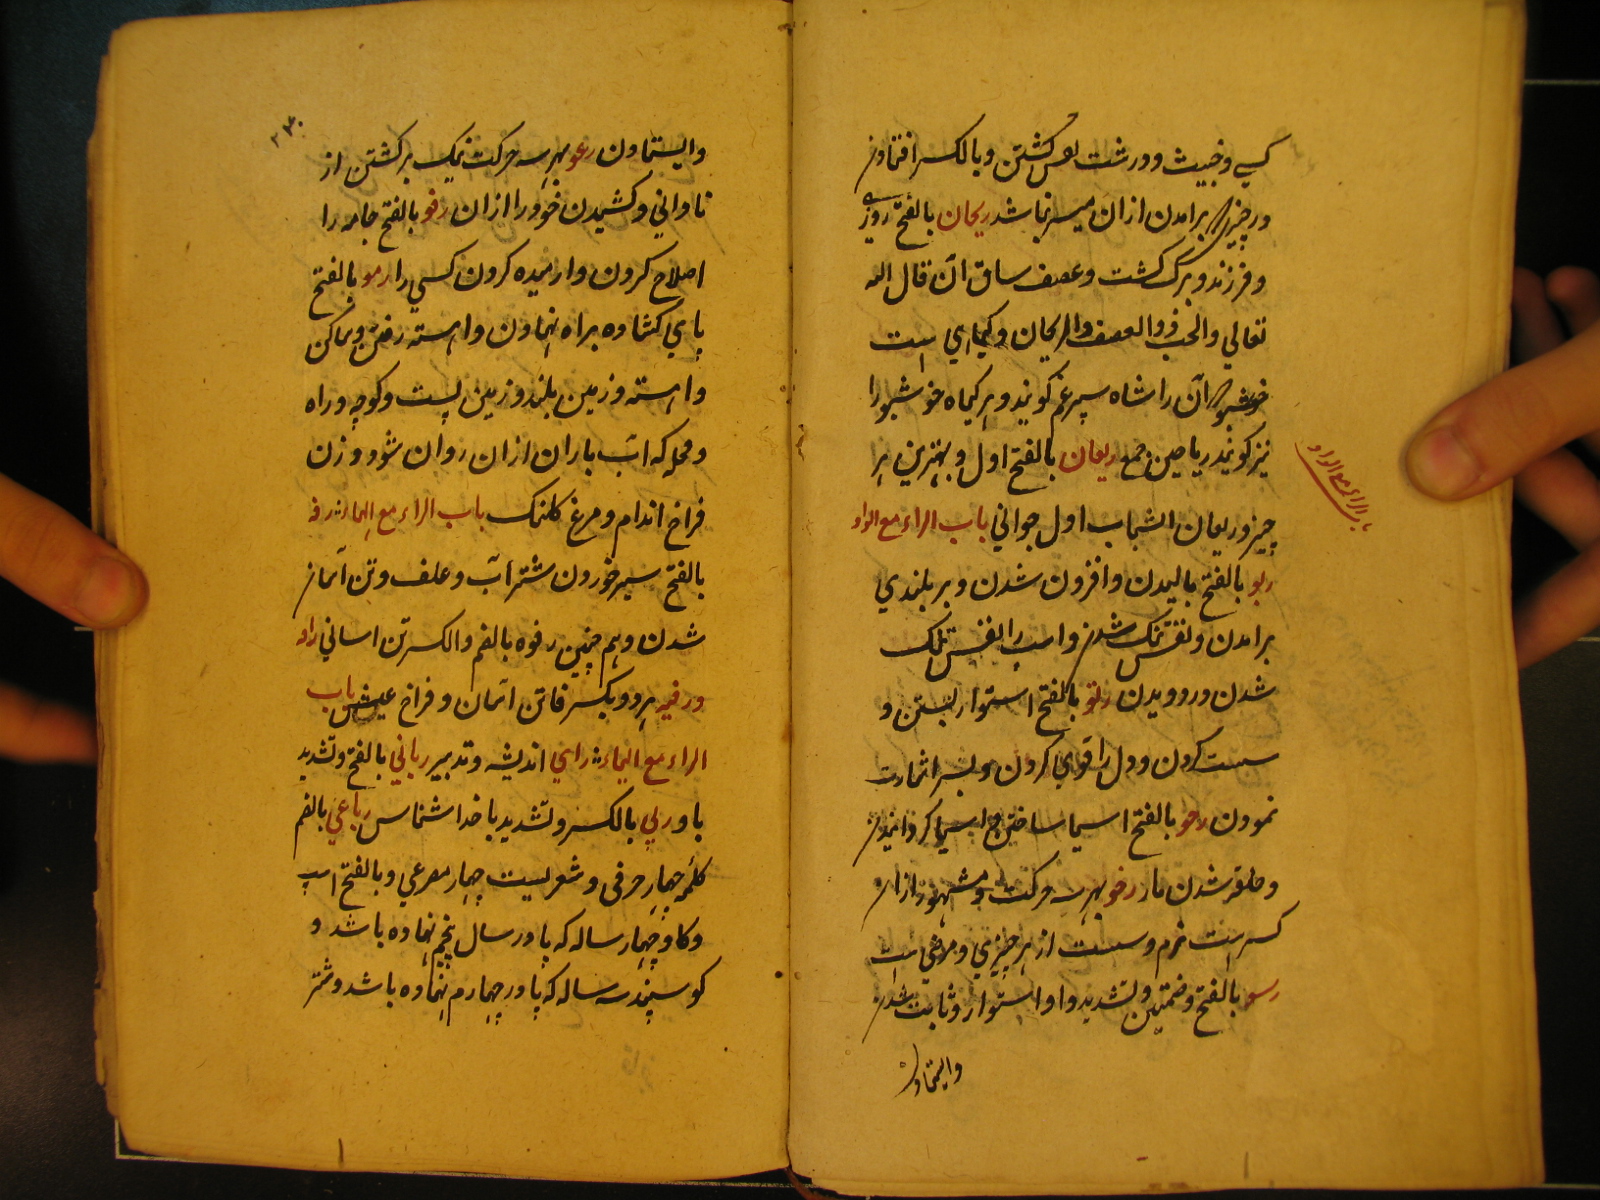 کسی و خبیث و درشت نفس کشتن و بالکسر افتادن
در چیزی که برامدن ازان میسر نباشد ریحان بالفتح روزی
و فرزند و برک کشت و عصف ساق ان قال الله
تعالی والحب ذوالعصف والریحان و کیاهی است
خوشبو که آن را شاه سپرغم کویند و هر کیاه خوشبو را
نیز کویند ریاحین جمع ریعان بالفتح اول و بهترین هر
چیز و ریعان الشباب اول جوانی باب الراء مع الواو
باب الراء مع الواو
ربو بالفتح بالیدن و افزون شدن و بر بلندی
برامدن و نفس تنک شدن و اسپ را نفس تنک
شدن و دویدن رتو بالفتح استوار بستن و
سست کردن و دل را قوی کردن و بسر اشارت
نمودن رحو بالفتح اسیا ساختن و اسیا کردانیدن
و حلقه شدن مار رخو بهر سه حرکت و مشهور ازان
کسر است نرم و سست از هر چیزی و مرضی است
رسو بالفتح و ضمتین و تشدید واو استوار و ثابت شدن
وایستادن
۲۳۰
وایستادن رعو بهر سه حرکت نیک برکشتن از
نادانی و کشیدن خود را ازان رفو بالفتح جامه را
اصلاح کردن و ارمیده کردن کسی را رهو بالفتح
پای کشاده براه نهادن و اهسته رفتن و ساکن
و اهسته و زمین بلند و زمین پست و کوچه و راه
و محله که اب باران ازان روان شود و زن
فراخ اندام و مرغ کلنک باب الراء مع الهاء رفه
بالفتح سیر خوردن شتر آب و علف و تن آساز
شدن و هم چنین رفوه بالضم والکسر تن اسانی راه
و رفیه هر دو بکسر فا تن آسان و فراخ عیش باب
الراء مع الیاء رای اندیشه و تدبیر ربانی بالفتح و تشدید
با و ربی بالکسر و تشدید با خدا شناس رباعی بالضم
کلمه چهار حرفی و شعریست چهار مصرعی و بالفتح اسپ
و کاو چهار ساله که پا در سال پنجم نهاده باشد و
کوسپند سه ساله که پا در چهارم نهاده باشد و شتر